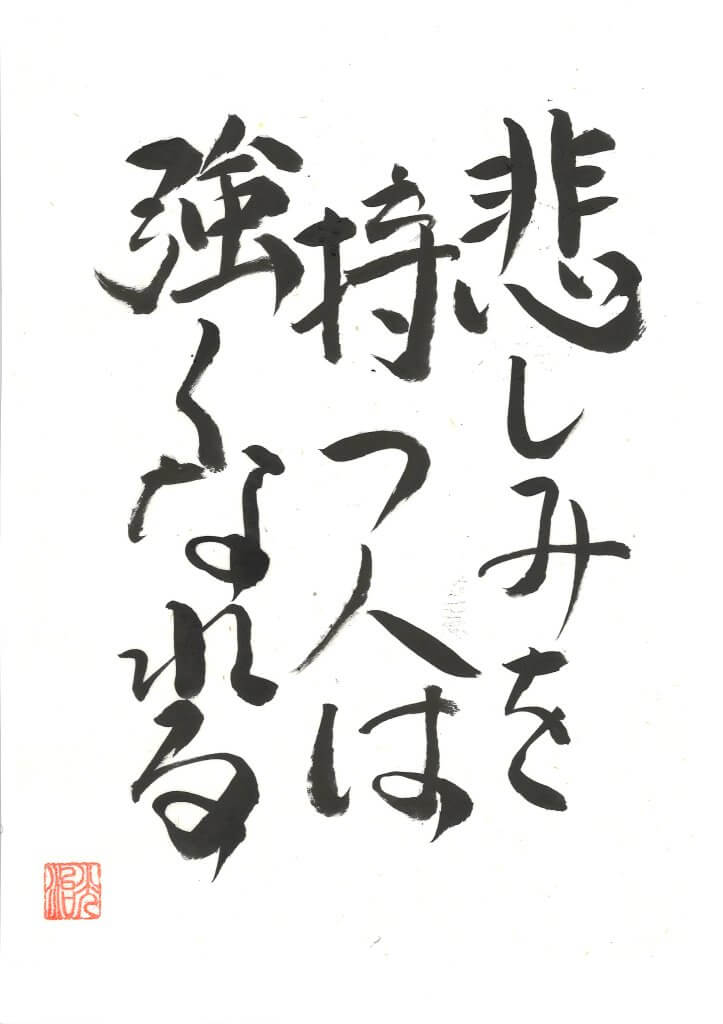 悲しみを
持つ人は
強くなれる